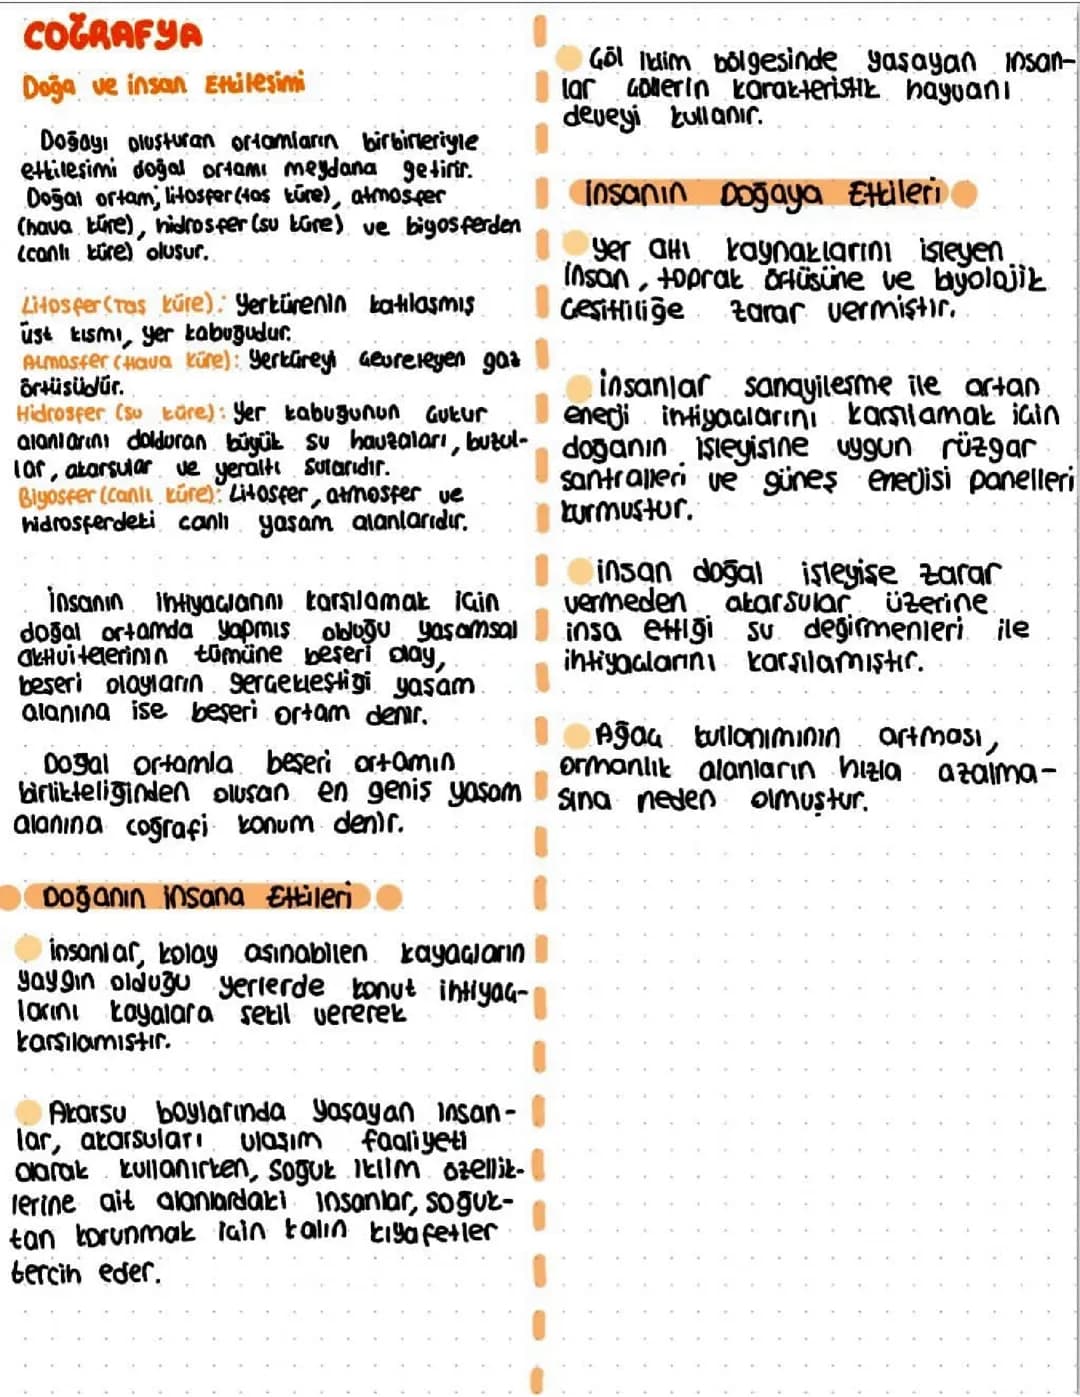 COĞRAFYA
Doğa ve insan Etkileşimi
Doğayı oluşturan ortamların birbirleriyle
etkileşimi doğal ortamı meydana getirir.
Doğal ortam; litosfer (taş küre), atmosfer
(hava küre), hidrosfer (su küre) ve biyosferden
(canlı küre) oluşur.
Litosfer (Taş küre): Yerkürenin katılaşmış
üst kısmı, yer kabuğudur.
Atmosfer (Hava küre): Yerküreyi çevreleyen gaz
örtüsüdür.
Hidrosfer (su küre): Yer kabuğunun çukur
alanlarını dolduran büyük su havzaları, buzul-
lar, akarsular ve yeraltı sularıdır.
Biyosfer (Canlı küre): Litosfer, atmosfer ve
hidrosferdeki canlı yaşam alanlarıdır.
İnsanın ihtiyaçlarını karşılamak için
doğal ortamda yapmış olduğu yaşamsal
aktivitelerinin tümüne beşeri olay,
beşeri olayların gerçekleştiği yaşam
alanına ise beşeri ortam denir.
Doğal ortamla beşeri ortamın
birlikteliğinden oluşan en geniş yaşam
alanına coğrafi konum denir.
Doğanın insana Etkileri
insanlar, kolay aşınabilen kayaçların
yaygın olduğu yerlerde konut ihtiyaç-
larını kayalara şekil vererek
karşılamıştır.
Akarsu boylarında yaşayan insan-
lar, akarsuları ulaşım faaliyeti
olarak kullanırken, soğuk iklim özellik-
lerine ait alanlardaki insanlar, soğuk-
tan korunmak için kalın kıyafetler
tercih eder.
Çöl iklim bölgesinde yaşayan insan-
lar çöllerin karakteristik hayvanı
deveyi kullanır.
insanın Doğaya Etkileri
Yer altı kaynaklarını işleyen
insan, toprak örtüsüne ve biyolojik
çeşitliliğe zarar vermiştir.
insanlar sanayileşme ile artan
enerji ihtiyaçlarını karşılamak için
doğanın işleyişine uygun rüzgar
santralleri ve güneş enerjisi panelleri
kurmuştur.
insan doğal işleyişe zarar
vermeden akarsular üzerine
inşa ettiği su değirmenleri ile
ihtiyaçlarını karşılamıştır.
Ağaç kullanımının artması,
ormanlık alanların hızla azalma-
sına neden olmuştur.